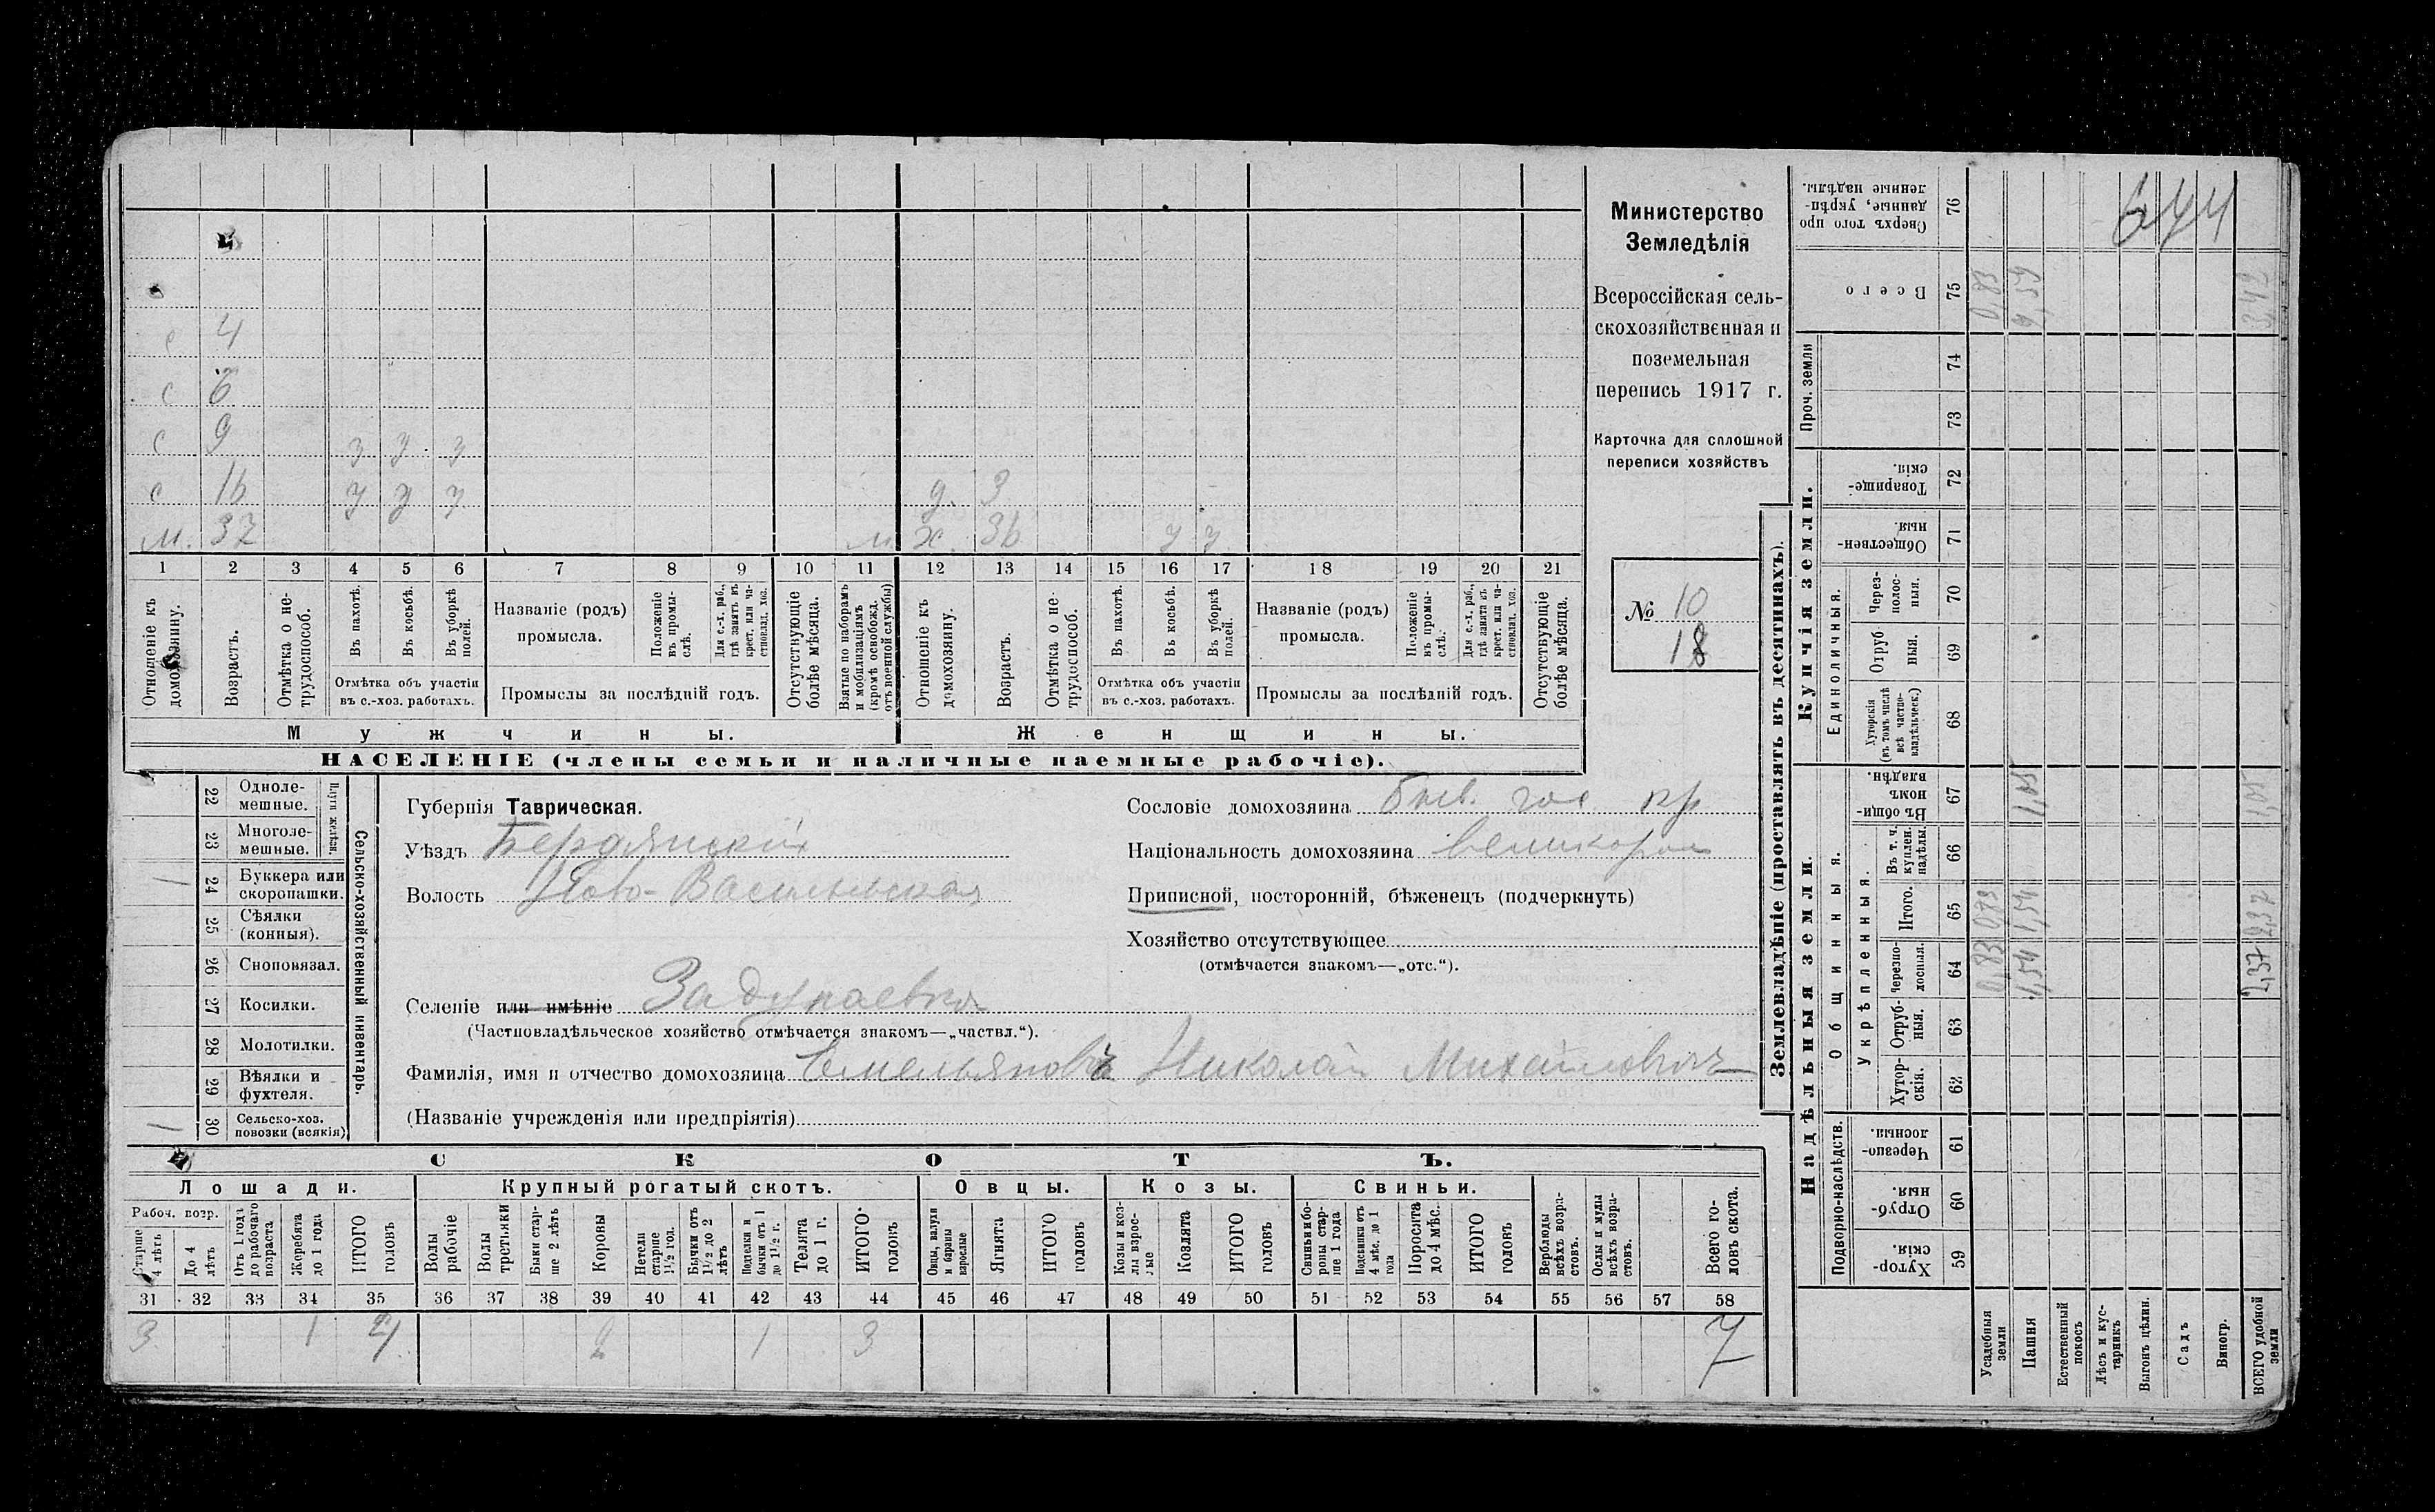 4
с 6
с 9 з з з
с 16 у у у д. 3
м. 37 м х. 36 у у
1 2 3 4 5 6 7 8 9 10 11 12 13 14 15 16 17 18 19 20 21
Отношеніе къ домохозяину.
Возрастъ.
Отмѣтка о нетрудоспособ.
Въ пахотѣ.
Въ косьбѣ.
Въ уборкѣ полей.
Отмѣтка объ участіи
въ с.-хоз. работахъ.
Названіе (родъ)
промысла.
Положеніе въ промыслѣ.
Для с.-х. раб., гдѣ занятъ въ крест. или частновлад. хоз.
Промыслы за послѣдній годъ.
Отсутствующіе болѣе мѣсяца.
Взятые по наборамъ и мобилизаціямъ (кромѣ освобожд. отъ военной службы)
Отношеніе къ домохозяину.
Возрастъ.
Отмѣтка о нетрудоспособ.
Въ пахотѣ.
Въ косьбѣ.
Въ уборкѣ полей.
Отмѣтка объ участіи
въ с.-хоз. работахъ.
Названіе (родъ)
промысла.
Положеніе въ промыслѣ.
Для с.-х. раб., гдѣ занята въ крест. или частновлад. хоз.
Промыслы за послѣдній годъ.
Отсутствующіе болѣе мѣсяца.
Мужчины. Женщины.
НАСЕЛЕНІЕ (члены семьи и наличные наемные рабочіе).
Министерство
Земледѣлія
Всероссійская сель-
скохозяйственная и
поземельная
перепись 1917 г.
Карточка для сплошной
переписи хозяйствъ
№ 10
18
Сельско-хозяйственный инвентарь.
Плуги желѣзн.
22 Одноле-
мешные.
23 Многоле-
мешные.
1 24 Буккера или
скоропашки.
25 Сѣялки
(конныя).
26 Сноповязал.
27 Косилки.
28 Молотилки.
29 Вѣялки и
фухтеля.
1 30 Сельско-хоз.
повозки (всякія)
Губернія Таврическая.
Уѣздъ Бердянскій
Волость Ново-Васильевская
Селеніе или имѣніе Задунаевка
(Частновладѣльческое хозяйство отмѣчается знакомъ—„частвл.“).
Фамилія, имя и отчество домохозяина Емельяновъ Николай Михайловичъ
(Названіе учрежденія или предпріятія)
Сословіе домохозяина бывш. гос. кр
Національность домохозяина великоросъ
Приписной, посторонній, бѣженецъ (подчеркнуть)
Хозяйство отсутствующее
(отмѣчается знакомъ—„отс.“).
СКОТЪ.
Лошади. Крупный рогатый скотъ. Овцы. Козы. Свиньи.
Рабоч. возр.
Старше 4 лѣтъ
До 4 лѣтъ
Отъ 1 года до рабочаго возраста
Жеребята до 1 года
ИТОГО головъ
Волы рабочіе
Волы третьяки
Быки старше 2 лѣтъ
Коровы
Нетели старше 1½ год.
Бычки отъ 1½ до 2 лѣтъ
Подтелки и бычки отъ 1 до 1½ г.
Телята до 1 г.
ИТОГО головъ
Овцы, валухи и бараны взрослые
Ягнята
ИТОГО головъ
Козы и козлы взрослые
Козлята
ИТОГО головъ
Свиньи и боровы старше 1 года
Подсвинки отъ 4 мѣс. до 1 года
Поросята до 4 мѣс.
ИТОГО головъ
Верблюды всѣхъ возрастовъ.
Ослы и мулы всѣхъ возрастовъ.
Всего головъ скота.
31 32 33 34 35 36 37 38 39 40 41 42 43 44 45 46 47 48 49 50 51 52 53 54 55 56 57 58
3 1 4 2 1 3 7
Землевладѣніе (проставлять въ десятинахъ).
Надѣльныя земли. Купчія земли. Проч. земли
Подворно-наслѣдств.
Общинныя.
Укрѣпленныя.
Единоличныя.
Хуторскія. 59
Отрубныя. 60
Черезполосныя. 61
Хуторскія. 62
Отрубныя. 63
Черезполосныя. 64
Итого. 65
Въ т. ч. куплен. надѣлы. 66
Въ общинномъ владѣн. 67
Хуторскія (въ томъ числѣ всѣ частновладѣльческ.) 68
Отрубныя. 69
Черезполосныя. 70
Общественныя. 71
Товарищескія. 72
73
74
Всего 75
Сверхъ того проданные, укрѣпленные надѣлы. 76
Усадебныя земли 0,83
Пашня 1,54 1,54 1,05 2,59
Естественный покосъ
Лѣсъ и кустарникъ
Выгонъ цѣлин.
Садъ
Виногр.
ВСЕГО удобной земли 2,37 2,37 1,05 3,42
644